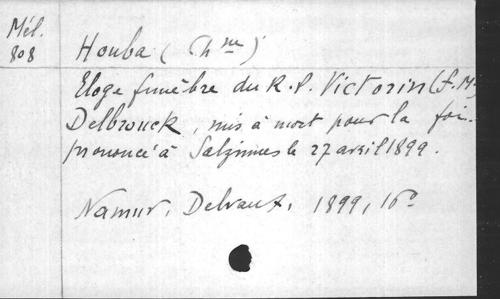 Mél.
808
Houba (hne)
Eloge funèbre du R. P. Victorin (f. M.
Delbrouck, mis à mort pour la foi.
prononcé à Salzinnes le 27 avril 1899.
Namur, Delvaux, 1899, 16o